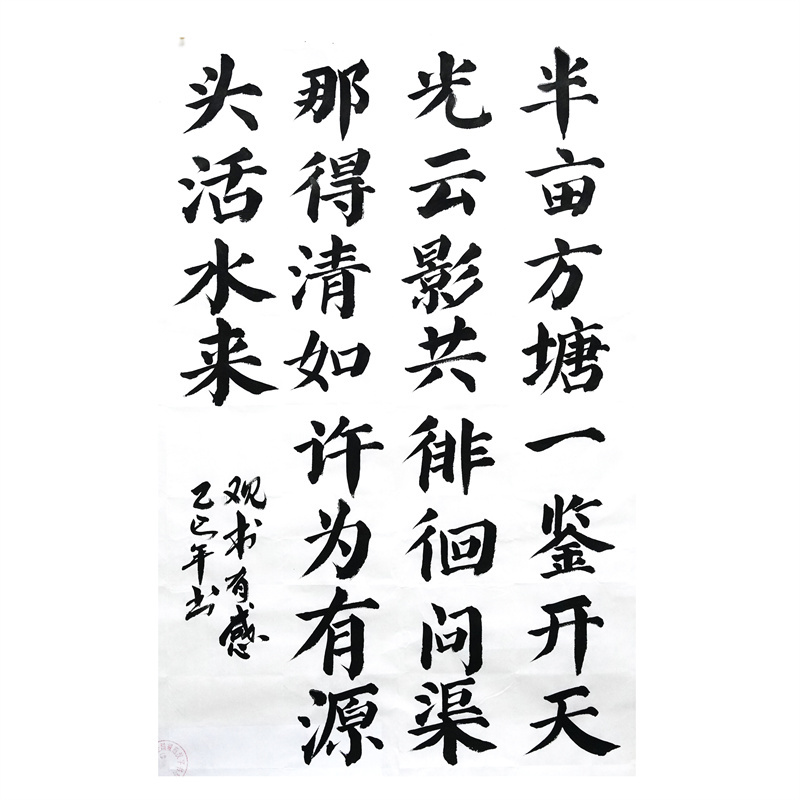 半亩方塘一鉴开天
光云影共徘徊问渠
那得清如许为有源
头活水来
观书有感
乙巳年书